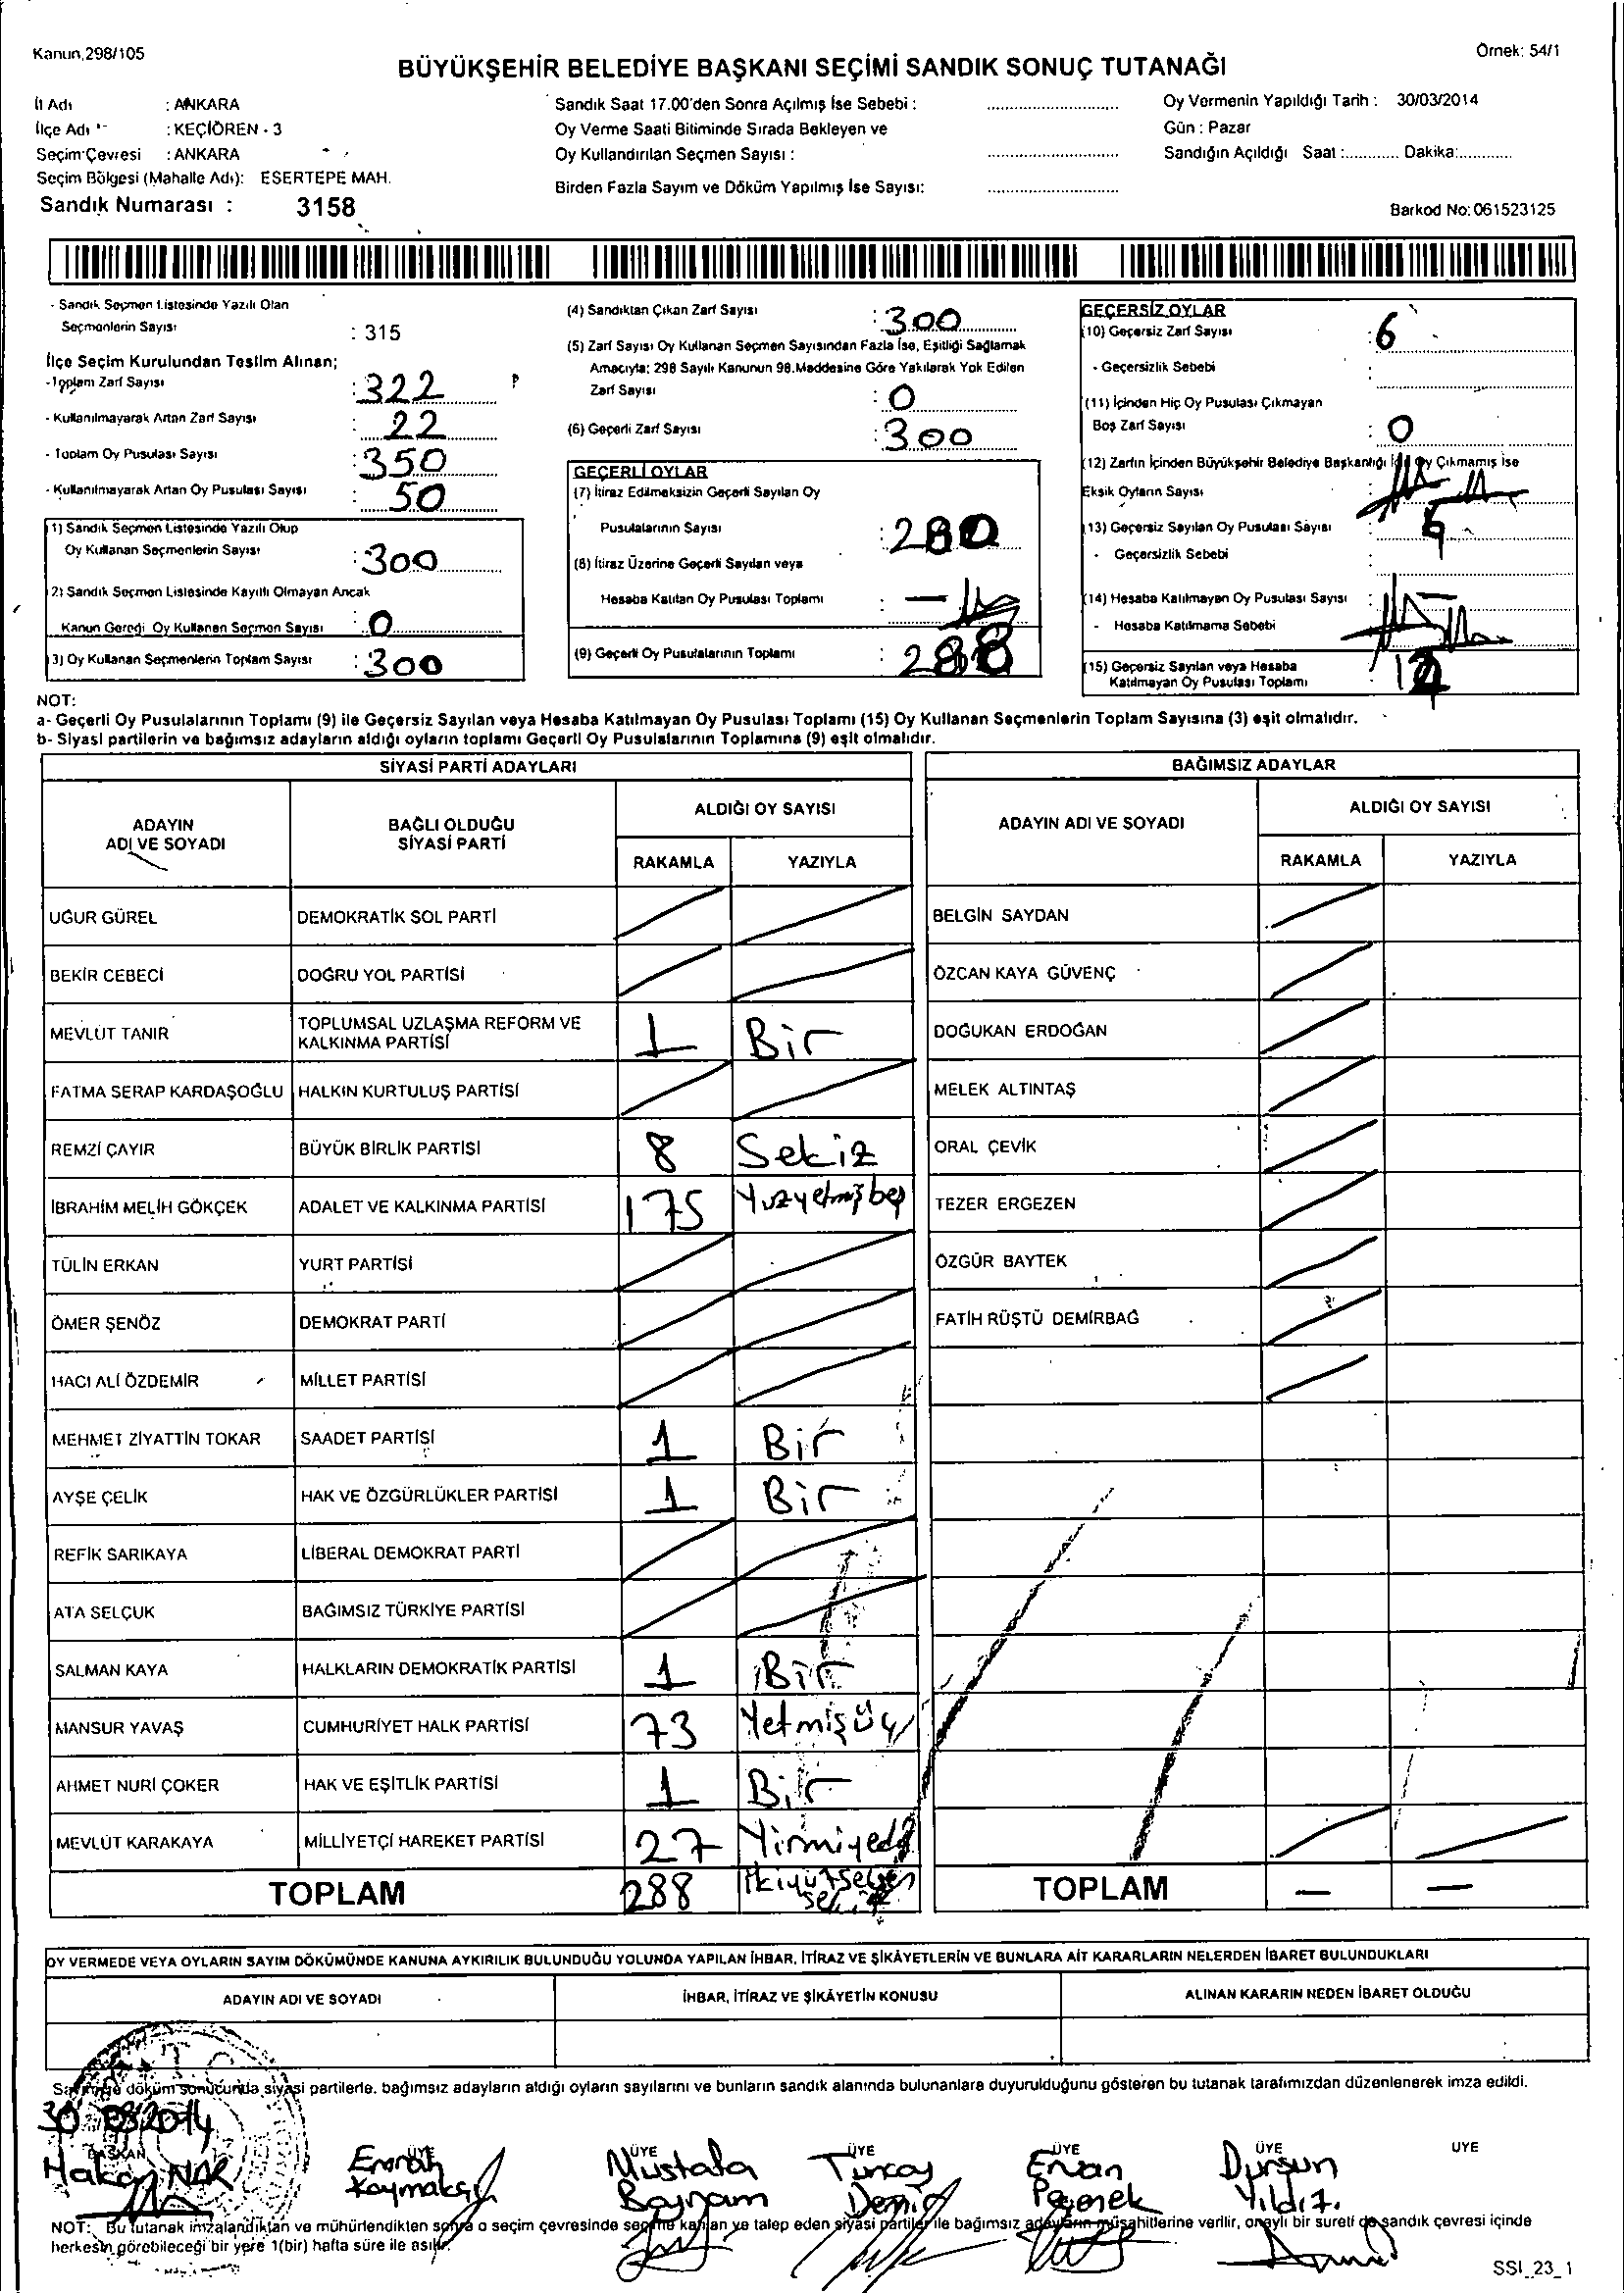 Kanun,298/105
Örnek: 54/1
BÜYÜKŞEHİR BELEDİYE BAŞKANI SEÇİMİ SANDIK SONUÇ TUTANAĞI
İl Adı : ANKARA
İlçe Adı : KEÇİÖREN - 3
Seçim Çevresi : ANKARA
Seçim Bölgesi (Mahalle Adı): ESERTEPE MAH.
Sandık Numarası : 3158
Sandık Saat 17.00'den Sonra Açılmış İse Sebebi :
Oy Verme Saati Bitiminde Sırada Bekleyen ve
Oy Kullandırılan Seçmen Sayısı :
Birden Fazla Sayım ve Döküm Yapılmış İse Sayısı:
Oy Vermenin Yapıldığı Tarih : 30/03/2014
Gün : Pazar
Sandığın Açıldığı Saat :............ Dakika:............
Barkod No: 061523125
- Sandık Seçmen Listesinde Yazılı Olan
Seçmenlerin Sayısı : 315
İlçe Seçim Kurulundan Teslim Alınan;
- Toplam Zarf Sayısı : 322
- Kullanılmayarak Artan Zarf Sayısı : 22
- Toplam Oy Pusulası Sayısı : 350
- Kullanılmayarak Artan Oy Pusulası Sayısı : 50
1) Sandık Seçmen Listesinde Yazılı Olup
Oy Kullanan Seçmenlerin Sayısı : 300
2) Sandık Seçmen Listesinde Kayıtlı Olmayan Ancak
Kanun Gereği Oy Kullanan Seçmen Sayısı : 0
3) Oy Kullanan Seçmenlerin Toplam Sayısı : 300
(4) Sandıktan Çıkan Zarf Sayısı : 300
(5) Zarf Sayısı Oy Kullanan Seçmen Sayısından Fazla İse, Eşitliği Sağlamak
Amacıyla; 298 Sayılı Kanunun 98.Maddesine Göre Yakılarak Yok Edilen
Zarf Sayısı : 0
(6) Geçerli Zarf Sayısı : 300
GEÇERLİ OYLAR
(7) İtiraz Edilmeksizin Geçerli Sayılan Oy
Pusulalarının Sayısı : 280
(8) İtiraz Üzerine Geçerli Sayılan veya
Hesaba Katılan Oy Pusulası Toplamı : —
(9) Geçerli Oy Pusulalarının Toplamı : 288
GEÇERSİZ OYLAR
(10) Geçersiz Zarf Sayısı : 6
- Geçersizlik Sebebi :
(11) İçinden Hiç Oy Pusulası Çıkmayan
Boş Zarf Sayısı : 0
(12) Zarfın İçinden Büyükşehir Belediye Başkanlığı İçin Oy Çıkmamış İse
Eksik Oyların Sayısı
(13) Geçersiz Sayılan Oy Pusulası Sayısı
- Geçersizlik Sebebi
(14) Hesaba Katılmayan Oy Pusulası Sayısı :
- Hesaba Katılmama Sebebi
(15) Geçersiz Sayılan veya Hesaba
Katılmayan Oy Pusulası Toplamı :
NOT:
a- Geçerli Oy Pusulalarının Toplamı (9) ile Geçersiz Sayılan veya Hesaba Katılmayan Oy Pusulası Toplamı (15) Oy Kullanan Seçmenlerin Toplam Sayısına (3) eşit olmalıdır.
b- Siyasi partilerin ve bağımsız adayların aldığı oyların toplamı Geçerli Oy Pusulalarının Toplamına (9) eşit olmalıdır.
SİYASİ PARTİ ADAYLARI
ADAYIN ADI VE SOYADI
BAĞLI OLDUĞU SİYASİ PARTİ
ALDIĞI OY SAYISI
RAKAMLA YAZIYLA
UĞUR GÜREL DEMOKRATİK SOL PARTİ
BEKİR CEBECİ DOĞRU YOL PARTİSİ
MEVLÜT TANIR TOPLUMSAL UZLAŞMA REFORM VE KALKINMA PARTİSİ 1 Bir
FATMA SERAP KARDAŞOĞLU HALKIN KURTULUŞ PARTİSİ
REMZİ ÇAYIR BÜYÜK BİRLİK PARTİSİ 8 Sekiz
İBRAHİM MELİH GÖKÇEK ADALET VE KALKINMA PARTİSİ 175 Yüzyetmişbeş
TÜLİN ERKAN YURT PARTİSİ
ÖMER ŞENÖZ DEMOKRAT PARTİ
HACI ALİ ÖZDEMİR MİLLET PARTİSİ
MEHMET ZİYATTİN TOKAR SAADET PARTİSİ 1 Bir
AYŞE ÇELİK HAK VE ÖZGÜRLÜKLER PARTİSİ 1 Bir
REFİK SARIKAYA LİBERAL DEMOKRAT PARTİ
ATA SELÇUK BAĞIMSIZ TÜRKİYE PARTİSİ
SALMAN KAYA HALKLARIN DEMOKRATİK PARTİSİ 1 Bir
MANSUR YAVAŞ CUMHURİYET HALK PARTİSİ 73 Yetmişüç
AHMET NURİ ÇOKER HAK VE EŞİTLİK PARTİSİ 1 Bir
MEVLÜT KARAKAYA MİLLİYETÇİ HAREKET PARTİSİ 27 Yirmiyedi
TOPLAM 288 İkiyüzseksen sekiz
BAĞIMSIZ ADAYLAR
ADAYIN ADI VE SOYADI
ALDIĞI OY SAYISI
RAKAMLA YAZIYLA
BELGİN SAYDAN
ÖZCAN KAYA GÜVENÇ
DOĞUKAN ERDOĞAN
MELEK ALTINTAŞ
ORAL ÇEVİK
TEZER ERGEZEN
ÖZGÜR BAYTEK
FATİH RÜŞTÜ DEMİRBAĞ
TOPLAM — —
OY VERMEDE VEYA OYLARIN SAYIM DÖKÜMÜNDE KANUNA AYKIRILIK BULUNDUĞU YOLUNDA YAPILAN İHBAR, İTİRAZ VE ŞİKÂYETLERİN VE BUNLARA AİT KARARLARIN NELERDEN İBARET BULUNDUKLARI
ADAYIN ADI VE SOYADI İHBAR, İTİRAZ VE ŞİKÂYETİN KONUSU ALINAN KARARIN NEDEN İBARET OLDUĞU
Sayım ve döküm sonucunda siyasi partilerle, bağımsız adayların aldığı oyların sayılarını ve bunların sandık alanında bulunanlara duyurulduğunu gösteren bu tutanak tarafımızdan düzenlenerek imza edildi.
30 03 2014
BAŞKAN ÜYE ÜYE ÜYE ÜYE ÜYE ÜYE
Hakan NAR
Mustafa Bayram
Tuncay Demir
Dursun Yıldız.
NOT: Bu tutanak imzalandıktan ve mühürlendikten sonra o seçim çevresinde seçime katılan ve talep eden siyasi partiler ile bağımsız adayların müşahitlerine verilir, onaylı bir sureti de sandık çevresi içinde
herkesin görebileceği bir yere 1(bir) hafta süre ile asılır.
SSI_23_1